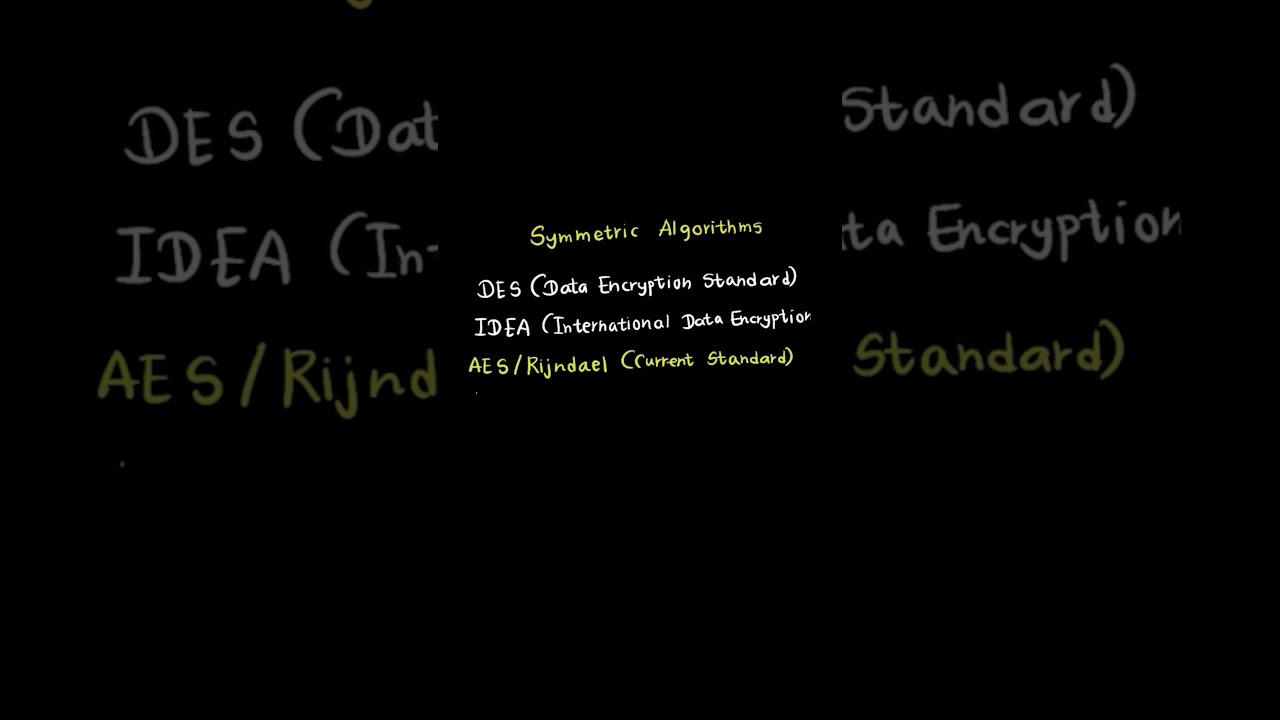 Symmetric Algorithms
DES (Data Encryption Standard)
IDEA (International Data Encryption
AES/Rijndael (Current Standard)